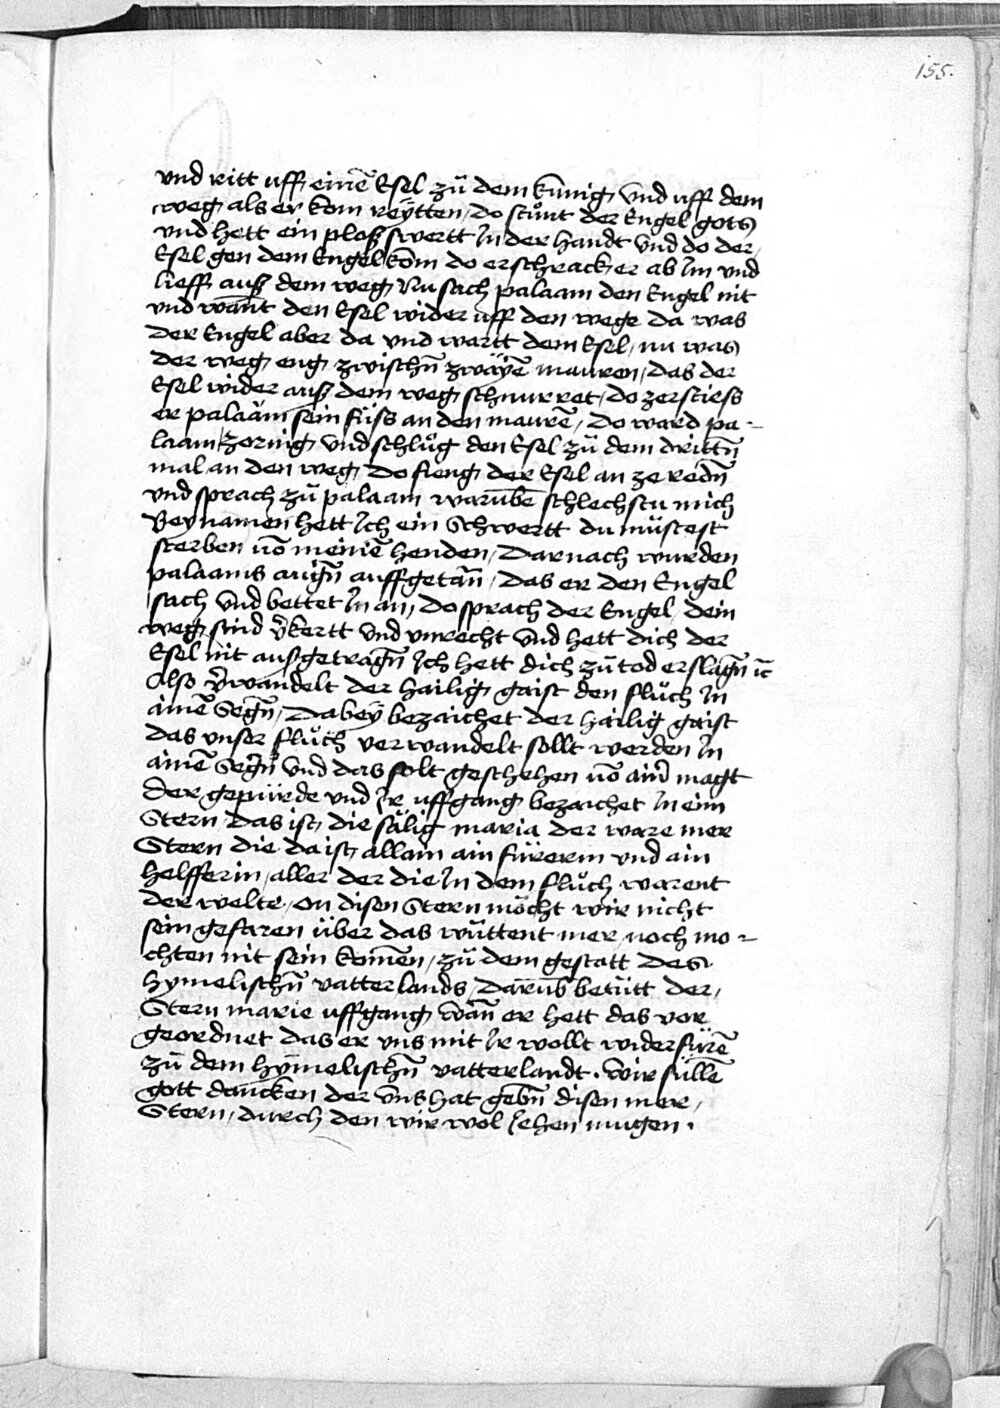 155.
und ritt uff einē Esel zů dem kūnig und uff dem
weg als er kom reÿtten / do stůnt der Engel gots
und hett ein ploß swertt In der handt und do der
Esel gen dem Engel kom do erschrack er ab Im und
lieff auß dem weg Nu sach palaam den Engel nit
und wānt den Esel wider uff den wege da was
der Engel aber da und wartt dem Esel / nu was
der weg eng zwischñ zwäÿē mauren / das der
Esel wider auß dem weg schnurret / do zerstiess
er palaām sein füss an den maurē / do ward pa-
laam zornig und schlůg den Esel zů dem drittñ
mal an den weg do fieng der Esel an ze redñ
und sprach zů palaam warūbē schlechstu mich
Beynamen hett Ich ein Schwertt du müstest
sterben uō meinē henden / Darnach wurden
palaams augñ auffgetān / das er den Engel
sach und bettet In an / do sprach der Engel / dein
weg sind v̄kertt und unrecht und hett dich der
Esel nit ausgetragñ Ich hett dich zů tod erslagñ ꝛc
Also v̄wandelt der hailig gaist den flůch In
ainē Segñ / Dabeÿ bezaichet der hailig gaist
das unser flůch verwandelt sollt werden In
ainē Segñ und das solt geschehen uō ainr̄ magt
der gepürde und Ir uffgang bezaichet In eim
Stern / das ist die sälig maria der ware mer
Stern die da ist allain ain fürerin und ain
helfferin / aller der die In dem flůch warent
der welte / on disen Stern möcht wir nicht
sein gefaren über das wüttent mer noch mo-
chten nit sein komēn / zů dem gestatt des
hymelischñ vatterlands / Darūb betütt der
Stern marie uffgang wān er hett das vor
geordnet das er uns mit Ir wollt widerfürē
zů dem hymelischñ vatterlandt . wir süllē
gott dancken der uns hat gebñ disen mer
Stern / durch den wir wol sehen mugen .